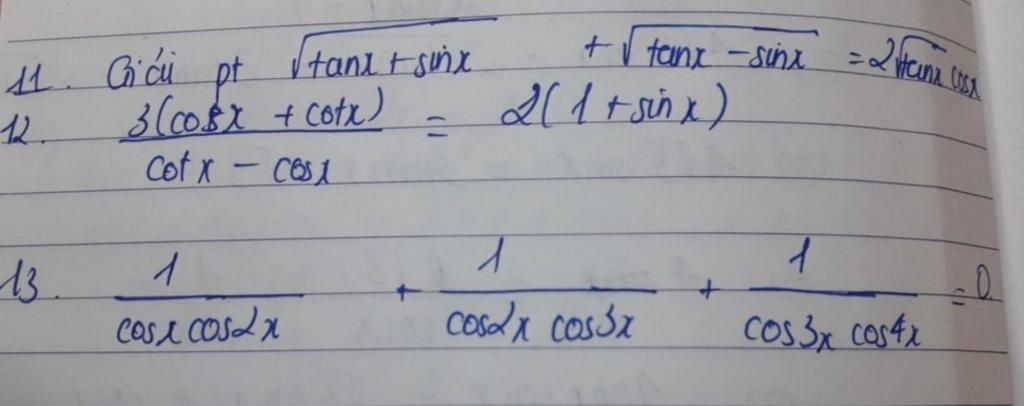 11. Giải pt √(tanx + sinx) + √(tanx - sinx) = 2√(tanx) cosx
12. 3(cosx + cotx) / (cotx - cosx) = 2(1 + sinx)
13. 1/(cosx cos2x) + 1/(cos2x cos3x) + 1/(cos3x cos4x) = 0.